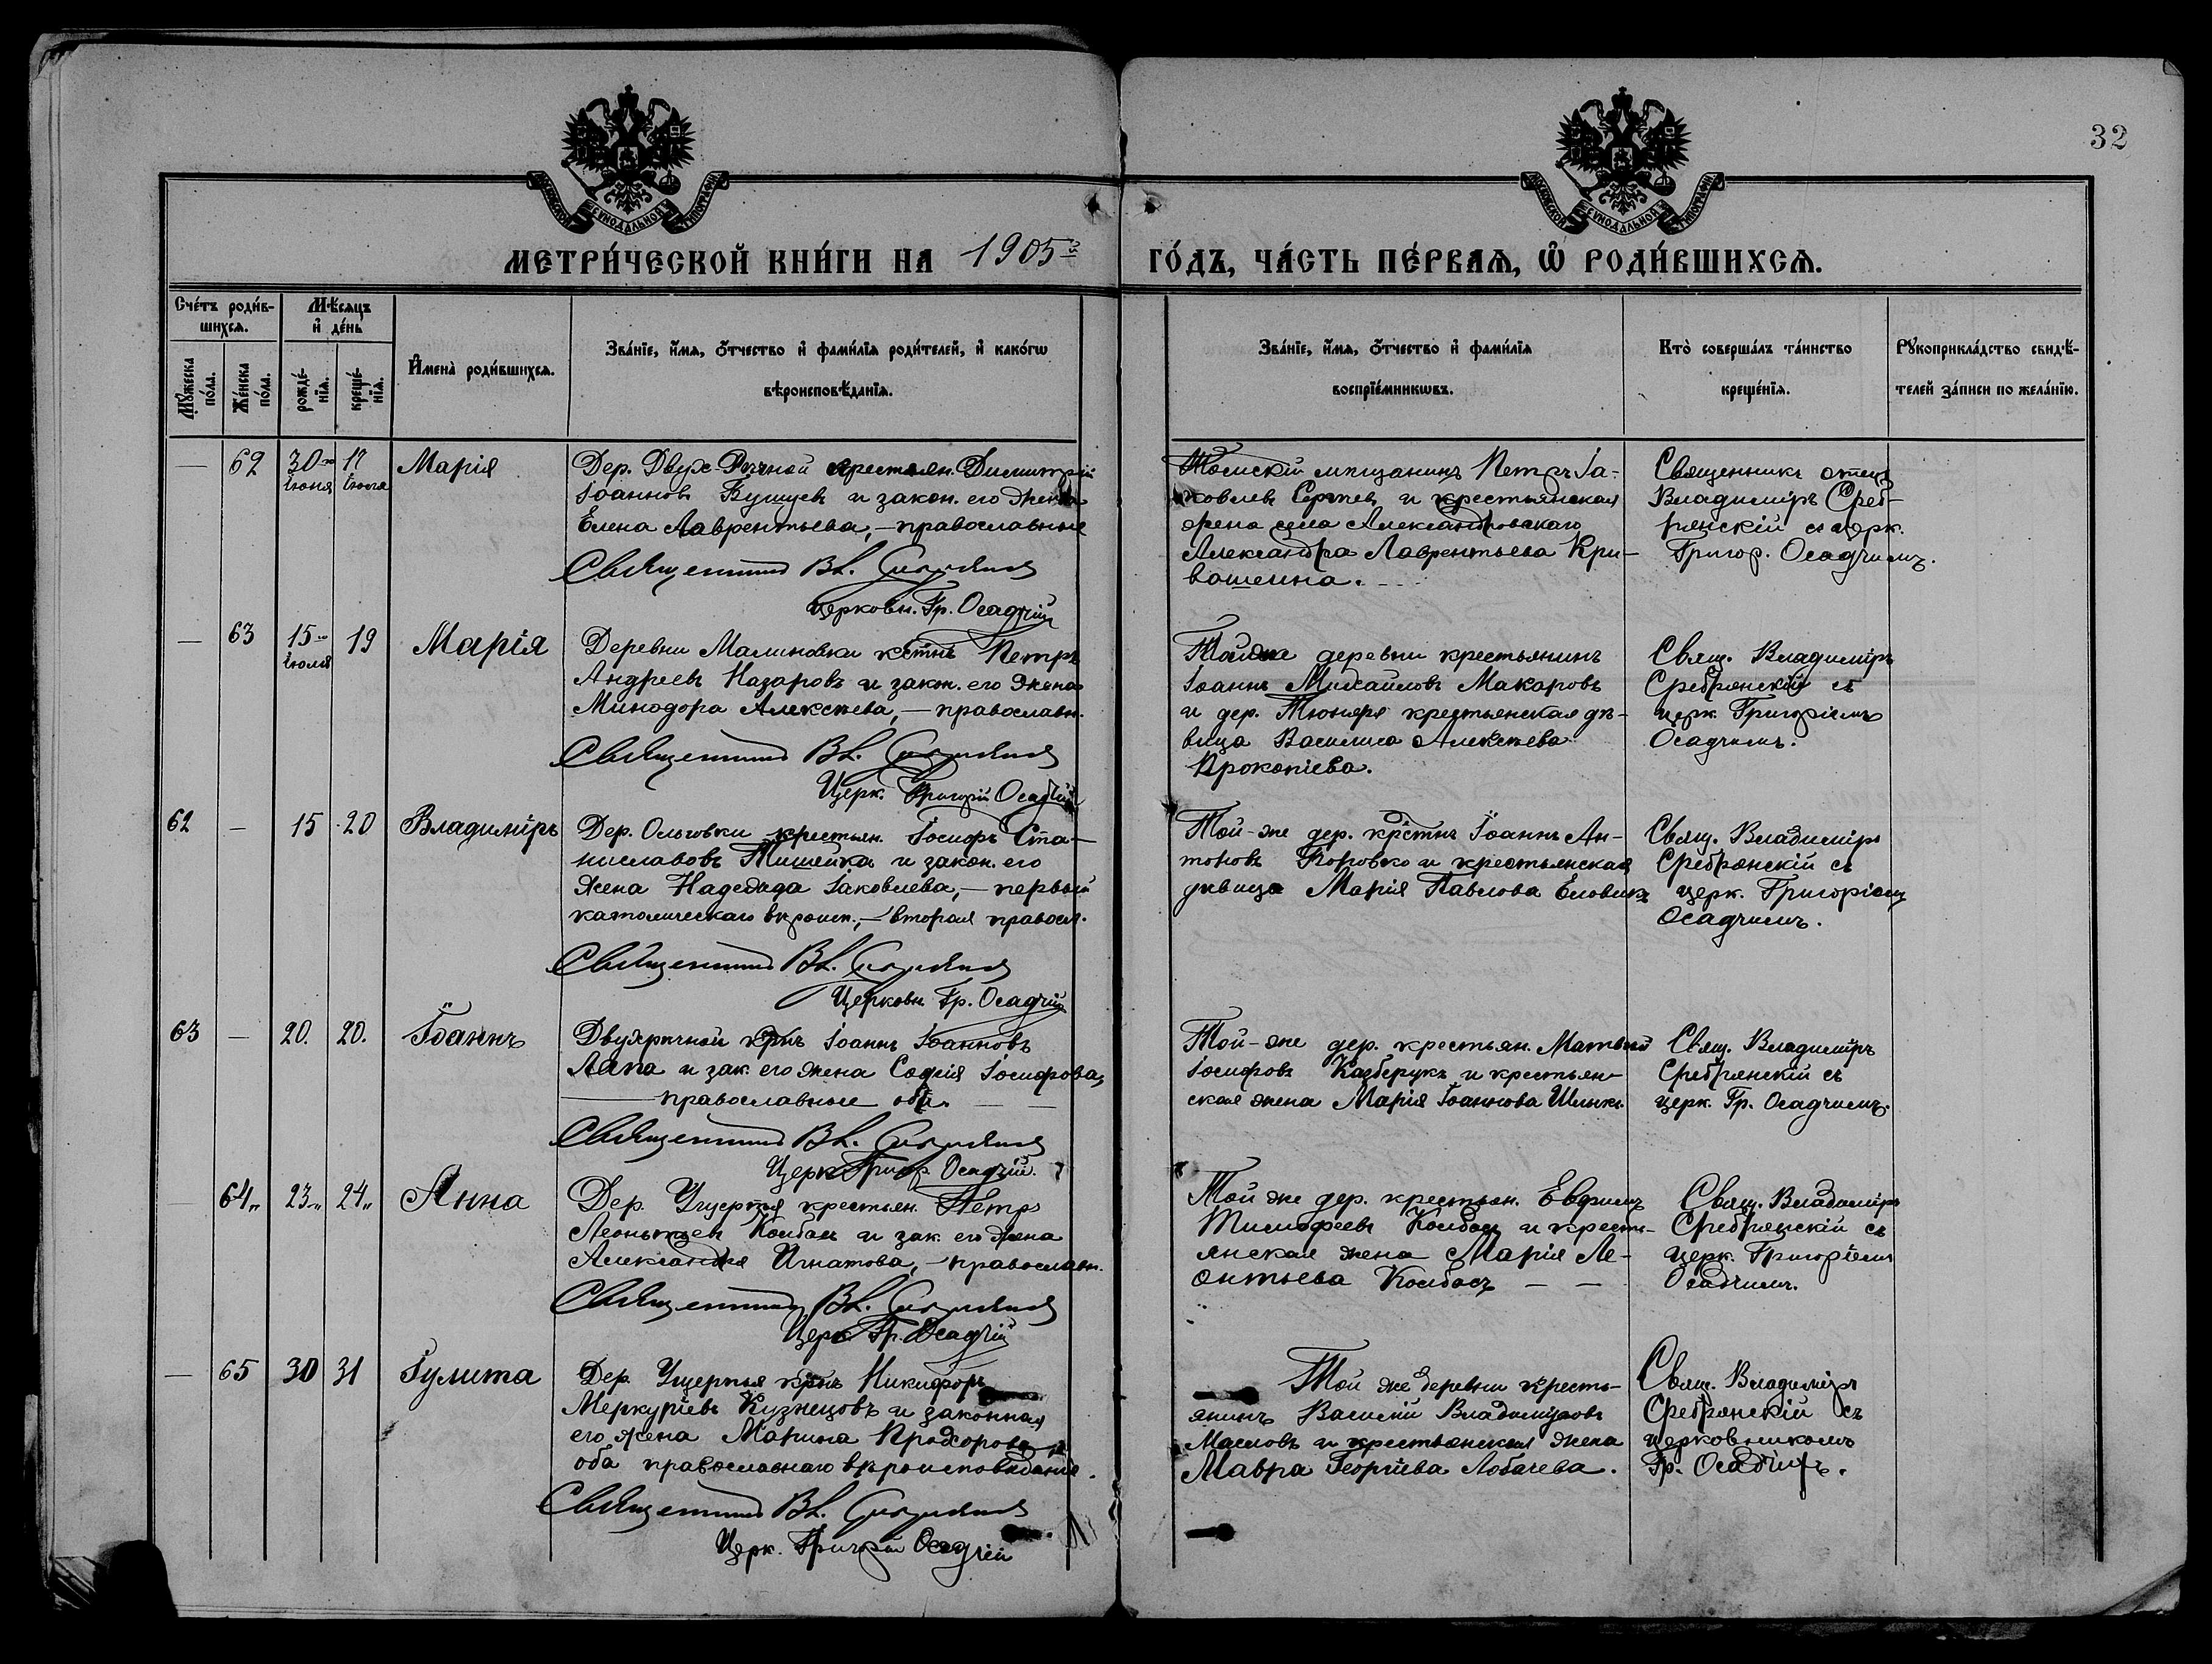 32
МОСКОВСКОЙ СѴНОДАЛЬНОЙ ТИПОГРАФІИ
МОСКОВСКОЙ СѴНОДАЛЬНОЙ ТИПОГРАФІИ
МЕТРИ́ЧЕСКОЙ КНИ́ГИ НА 1905й ГО́ДЪ, ЧА́СТЬ ПЕ́РВАѦ, Ѽ РОДИ́ВШИХСѦ.
Сче́тъ роди́в-
шихсѧ.
Мѣ́сѧцъ
и҆ де́нь
Мꙋ́жеска по́ла.
Же́нска по́ла.
рожде́-
нїѧ.
креще́-
нїѧ.
И҆мена̀ роди́вшихсѧ.
Зва́нїе, и҆́мѧ, ѻ҆́тчество и҆ фами́лїѧ роди́телей, и҆ како́гѡ
вѣроисповѣ́данїѧ.
Зва́нїе, и҆́мѧ, ѻ҆́тчество и҆ фами́лїѧ
воспрїе́мникѡвъ.
Кто̀ соверша́лъ та́инство
креще́нїѧ.
Рꙋкоприкла́дство свидѣ́-
телей за́писи по жела́нїю.
— 62 30го іюня 17 іюля Марія
Дер. Двух-Рѣчной крестьян. Димитрій
Іоанновъ и закон. его жена
Елена Лаврентьева, — православные
Священникъ Вл.
церковн. Гр. Осадчій
Томскій мѣщанинъ Петръ Іа-
ковлевъ Сергѣевъ и крестьянская
жена села Александровскаго
Александра Лаврентьева Кри-
вошеина.
Священникъ отецъ
Владиміръ Среб-
рянскій съ церк.
Григор. Осадчимъ.
— 63 15го іюля 19 Марія
Деревни Малиновки кстнъ Петръ
Андреевъ Назаровъ и закон. его жена
Минодора Алексѣева, — православн.
Священникъ Вл.
Церк. Григорій Осадчій
Той же деревни крестьянинъ
Іоаннъ Михайловъ Макаровъ
и дер. крестьянская дѣ-
вица Василиса Алексѣева
Прокопіева.
Свящ. Владиміръ
Сребрянскій съ
церк. Григоріемъ
Осадчимъ.
62 — 15 20 Владиміръ
Дер. Ольговки крестьян. Іосифъ Ста-
ниславовъ Тишейка и закон. его
жена Надежда Іаковлева, — первый
католическаго вѣроисп., — вторая правосл.
Священникъ Вл.
Церковн. Гр. Осадчій
Той-же дер. крстнъ Іоаннъ Ан-
тоновъ и крестьянская
дѣвица Марія Павлова
Свящ. Владиміръ
Сребрянскій съ
церк. Григоріемъ
Осадчимъ.
63 — 20. 20. Іоаннъ
Двухрѣчной крнъ Іоаннъ Іоанновъ
Лапа и зак. его жена Софія Іосифова,
— православные оба. —
Священникъ Вл.
Церк. Григор. Осадчій.
Той-же дер. крестьян. Матвей
Іосифовъ Казберукъ и крестьян-
ская жена Марія Іоаннова
Свящ. Владиміръ
Сребрянскій съ
церк. Гр. Осадчимъ.
— 64 23 24 Анна
Дер. Ущерпья крестьян. Петръ
Леонтьевъ Колбасъ и зак. его жена
Александра Игнатова, — православн.
Священникъ Вл.
Церк. Гр. Осадчій
Той же дер. крестьян. Евфимъ
Тимофеевъ Колбасъ и кресть-
янская жена Марія Ле-
онтьева Колбасъ — —
Свящ. Владиміръ
Сребрянскій съ
церк. Григоріемъ
Осадчимъ.
— 65 30 31 Іулита
Дер. Ущерпья крнъ Никифоръ
Меркуріевъ Кузнецовъ и законная
его жена Марина Прохорова,
оба православнаго вѣроисповѣданія.
Священникъ Вл.
Церк. Григорій Осадчій
Той же деревни кресть-
янинъ Василій Владиміровъ
Масловъ и крестьянская жена
Мавра Георгіева Лобачева.
Свящ. Владиміръ
Сребрянскій съ
церковникомъ
Гр. Осадчимъ.